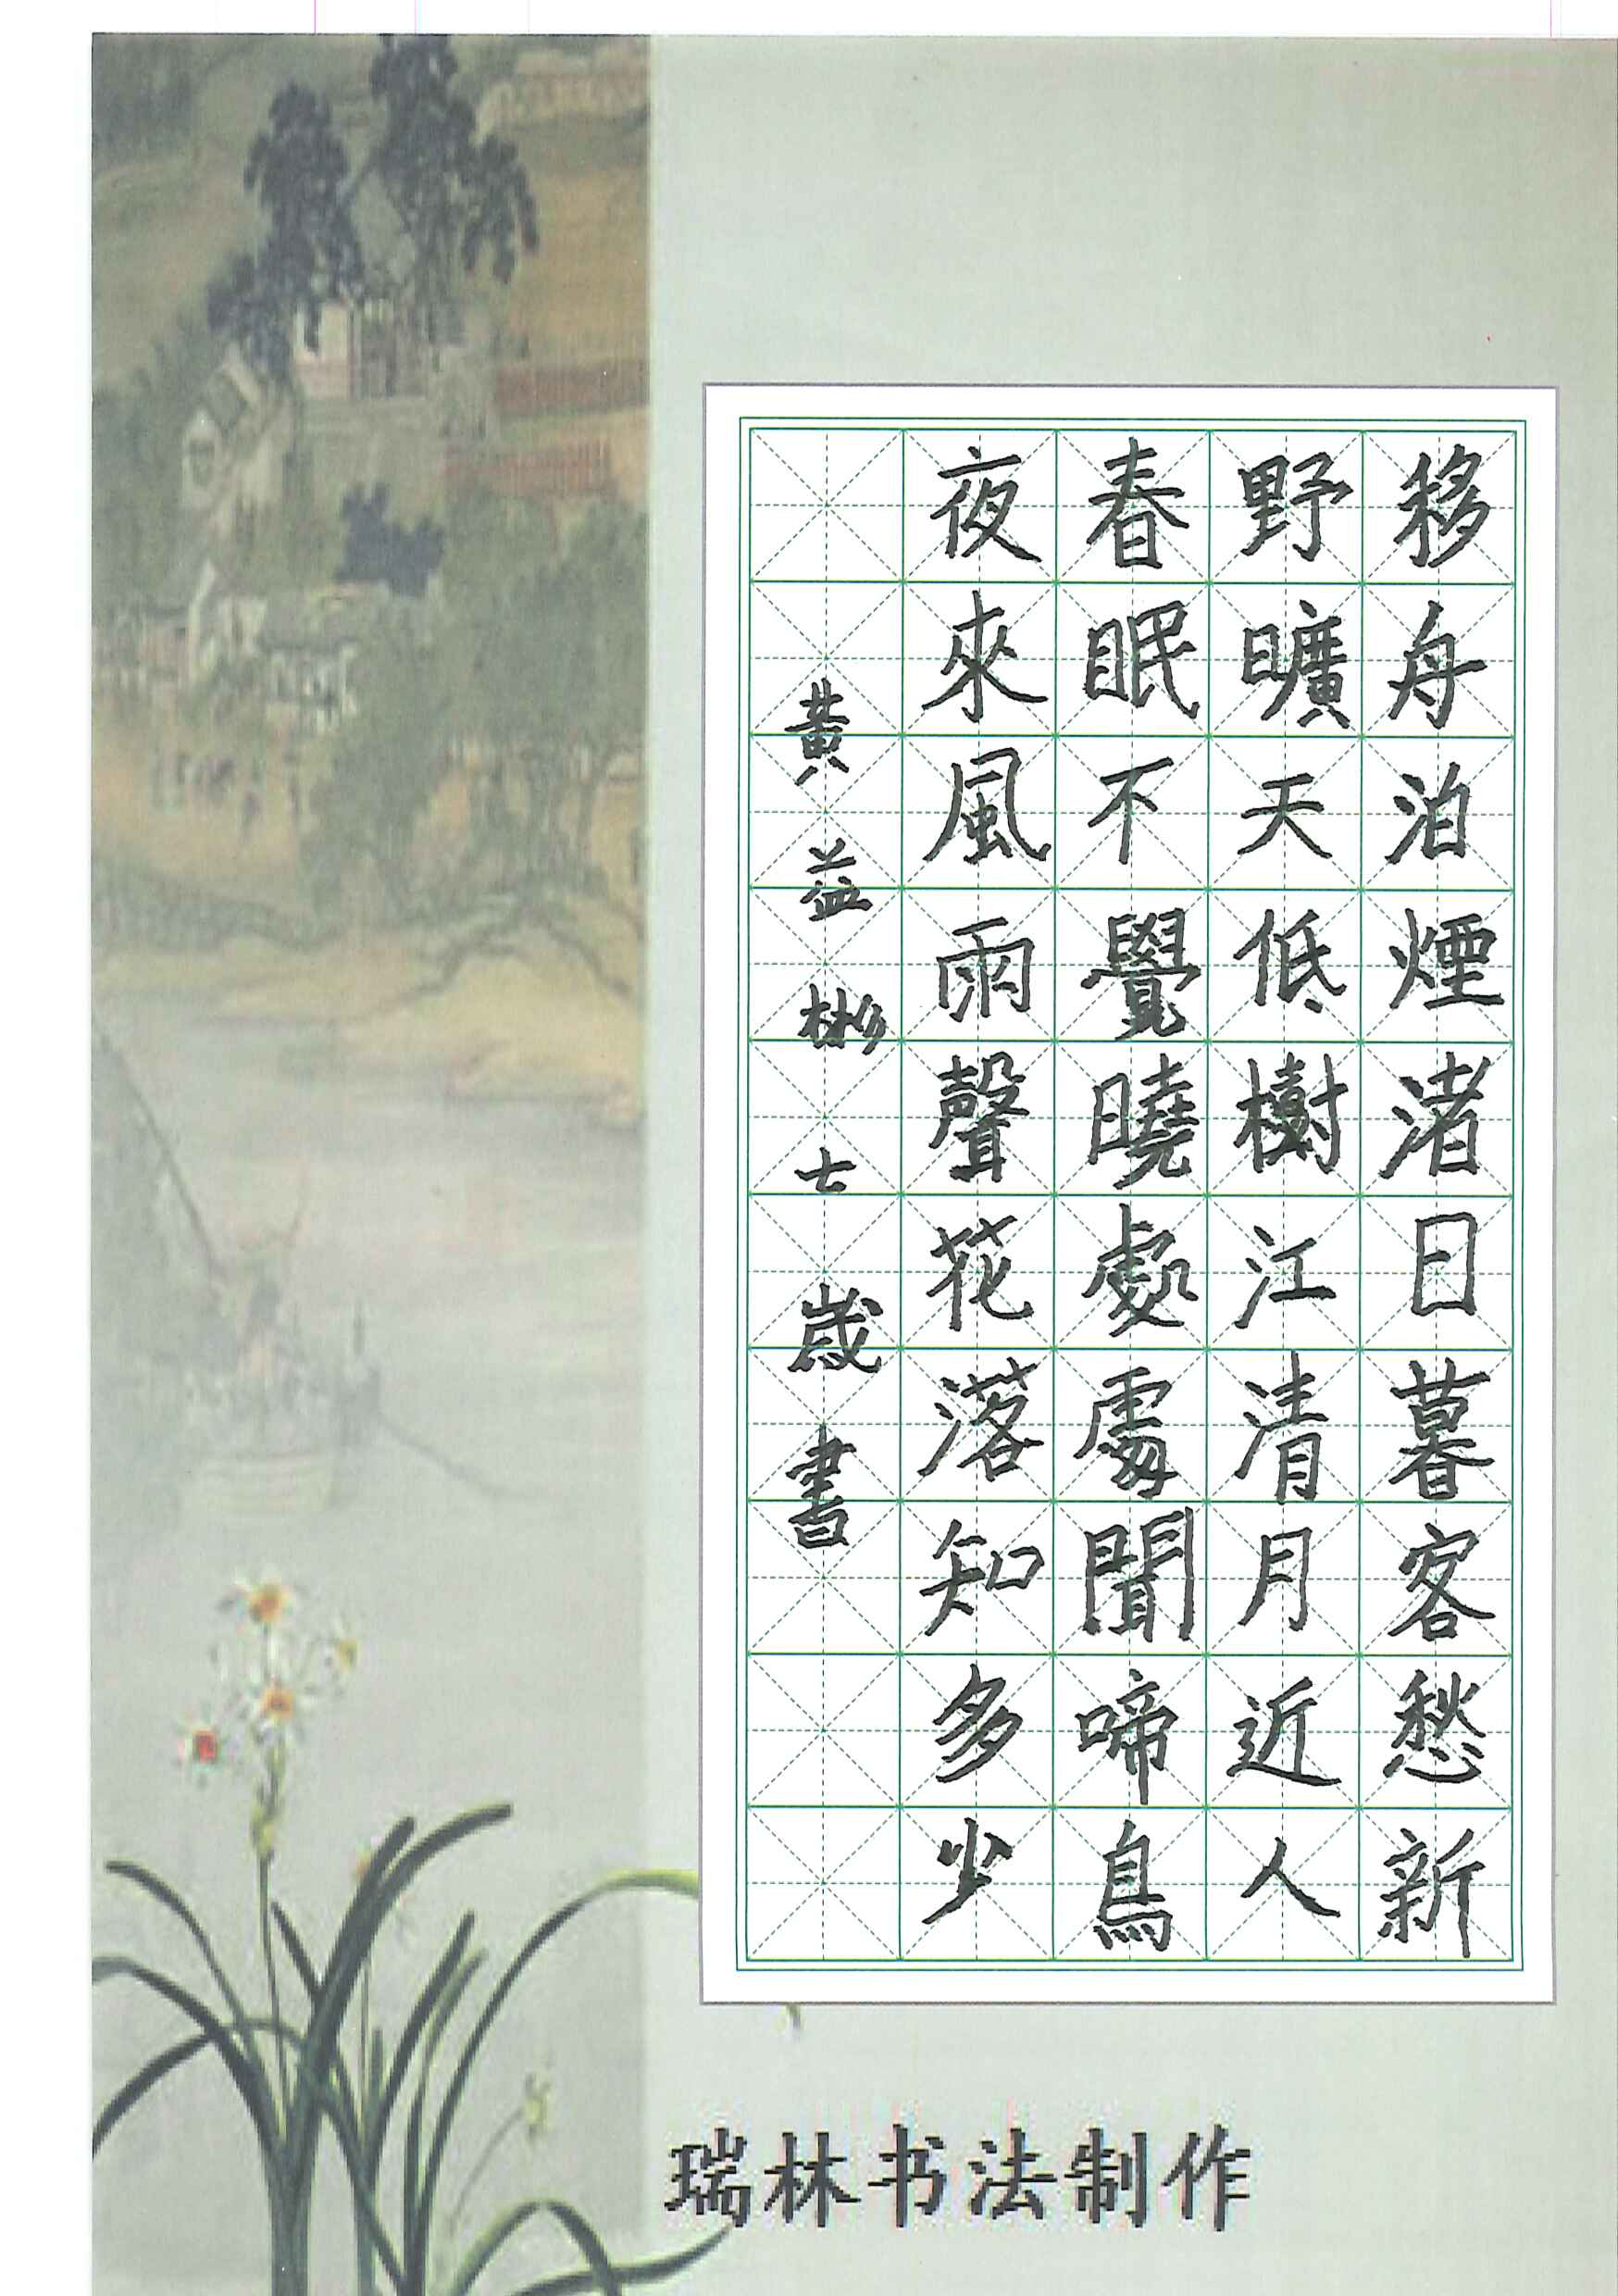 移舟泊煙渚日暮客愁新
野曠天低樹江清月近人
春眠不覺曉處處聞啼鳥
夜來風雨聲花落知多少
黃益彬七歲書
瑞林书法制作